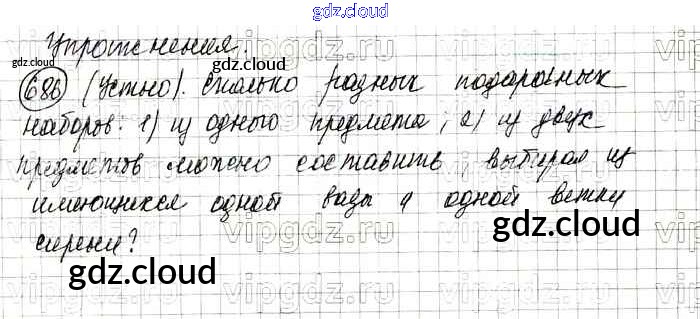 gdz.cloud
Упражнения.
686 (Устно). Сколько разных подарочных
наборов: 1) из одного предмета; 2) из двух
предметов можно составить, выбирая из
имеющихся одной вазы и одной ветки
сирени?
gdz.cloud
gdz.cloud
gdz.cloud
gdz.cloud
vipgdz.ru
vipgdz.ru
vipgdz.ru
vipgdz.ru